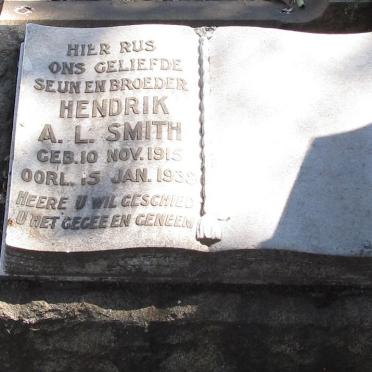 HIER RUS
ONS GELIEFDE
SEUN EN BROEDER
HENDRIK
A. L. SMITH
GEB. 10 NOV. 1915
OORL. 15 JAN. 1938
HEERE U WIL GESCHIED
U HET GEGEE EN GENEEM